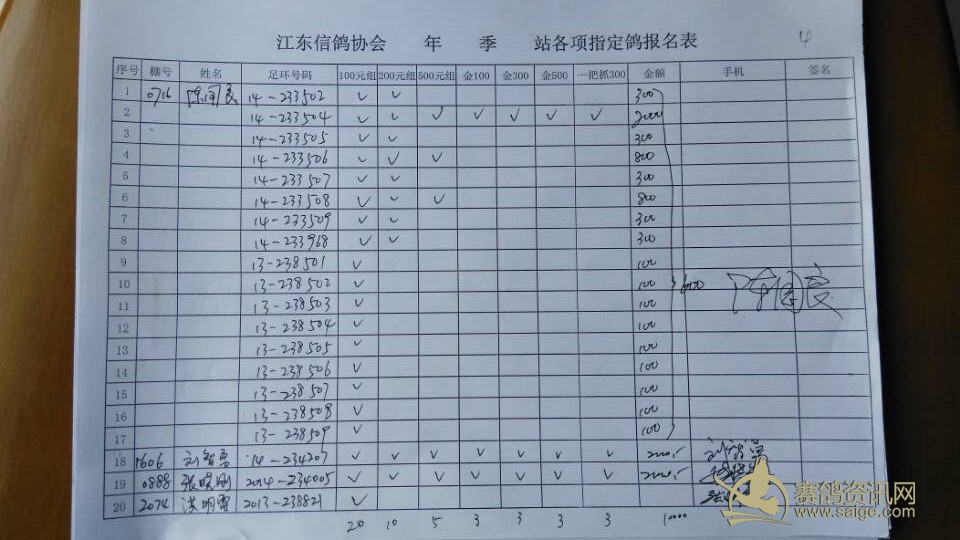 江东信鸽协会 年 季 站各项指定鸽报名表 4
序号 棚号 姓名 足环号码 100元组 200元组 500元组 金100 金300 金500 一把抓300 金额 手机 签名
1 0716 陈国良 14-233502 ✓ ✓ 300
2 14-233504 ✓ ✓ ✓ ✓ ✓ ✓ ✓ 2000
3 14-233505 ✓ ✓ 300
4 14-233506 ✓ ✓ ✓ 800
5 14-233507 ✓ ✓ 300
6 14-233508 ✓ ✓ ✓ 800
7 14-233509 ✓ ✓ 300
8 14-233968 ✓ ✓ 300
9 13-238501 ✓ 100
10 13-238502 ✓ 100 陈国良
11 13-238503 ✓ 100
12 13-238504 ✓ 100
13 13-238505 ✓ 100
14 13-238506 ✓ 100
15 13-238507 ✓ 100
16 13-238508 ✓ 100
17 13-238509 ✓ 100
18 1606 刘智勇 14-234207 ✓ ✓ ✓ ✓ ✓ ✓ ✓ 2000.- 刘智勇
19 0888 张晓刚 2014-234005 ✓ ✓ ✓ ✓ ✓ ✓ ✓ 2000.-
20 2074 洪明雷 2013-238821 ✓
20 10 5 3 3 3 3 10000
赛鸽资讯网
www.saige.com